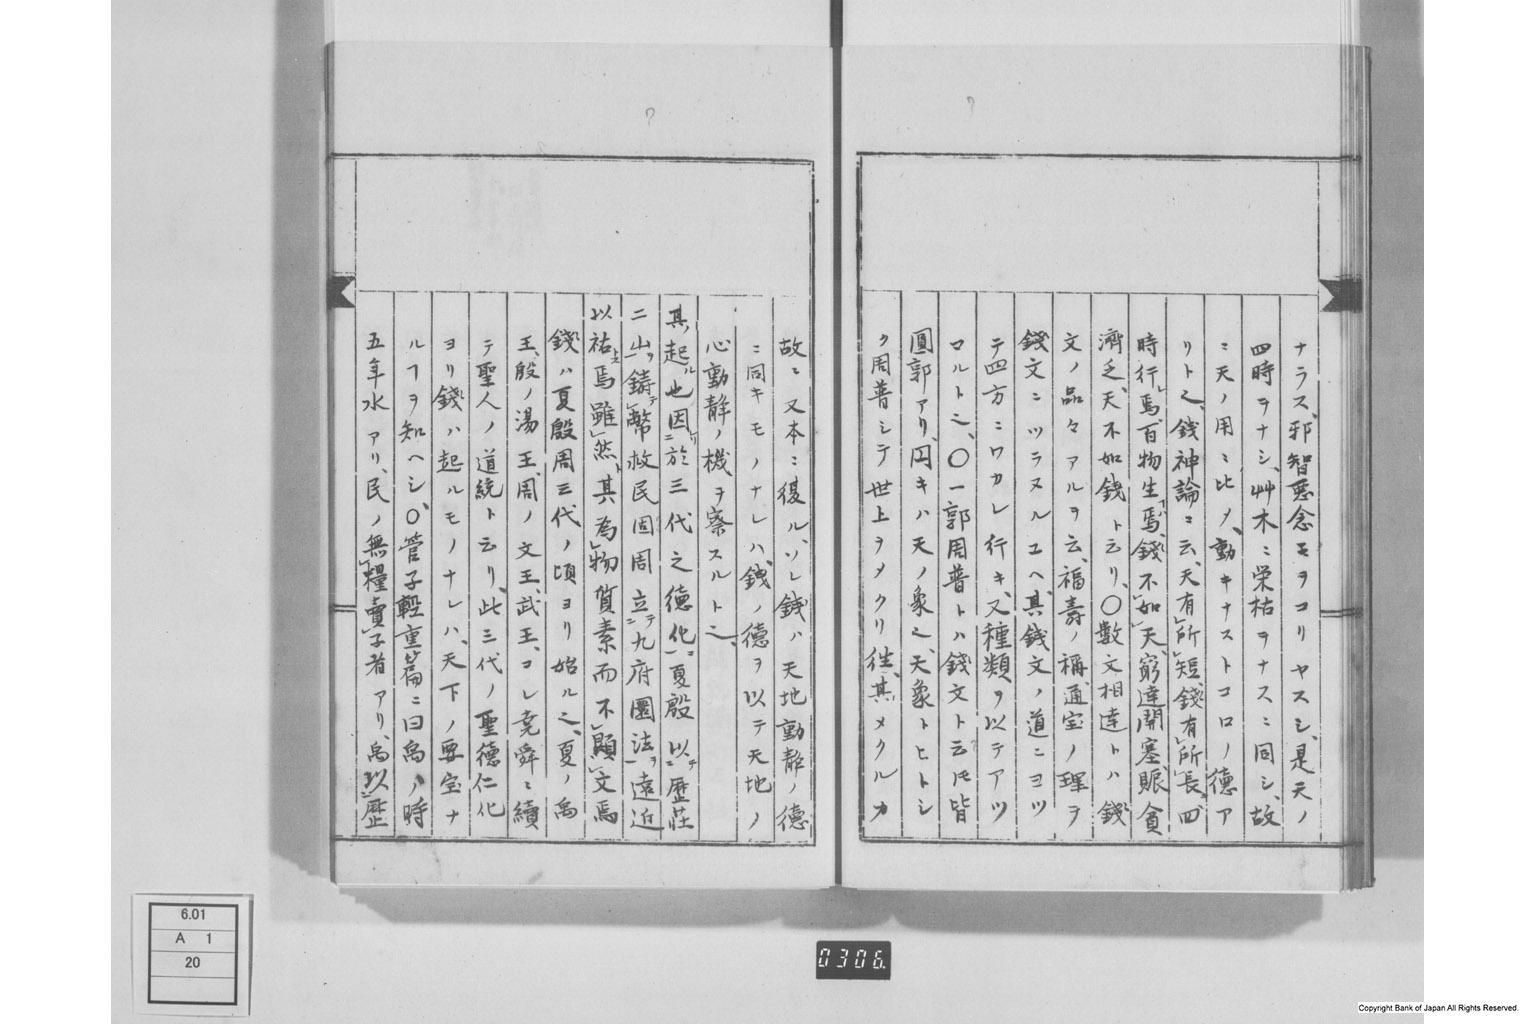 ナラス、邪智悪念モヲコリヤスシ、是天ノ
四時ヲナシ、艸木ニ栄枯ヲナスニ同シ、故
ニ天ノ用ニ比メ、動キナストコロノ徳ア
リト之、銭神論ニ云、天有所短、銭有所長、四
時行焉、百物生焉、銭不如天、窮達開塞、賑貧
濟乏、天不如銭ト云リ、〇數文相達トハ銭
文ノ品々アルヲ云、福壽ノ稱、通宝ノ理ヲ
銭文ニツラヌルユヘ、其銭文ノ道ニヨツ
テ四方ニワカレ行キ、又種類ヲ以テアツ
マルト之、〇一郭周普トハ銭文ト云ヒ皆
圓郭アリ、円キハ天ノ象之、天象トヒトシ
ク周普シテ世上ヲメクリ徃、其メクルカ
故ニ又本ニ復ル、ソレ銭ハ天地動静ノ徳
ニ同キモノナレハ、銭ノ徳ヲ以テ天地ノ
心動静ノ機ヲ察スルト之、
其起ル也因リ於三代之徳化ニ夏殷以テ歴荘
二山ヲ鋳テ幣救民困周立テ九府圜法ヲ遠近
以祐焉雖然ト其為物質素而不顕文焉
銭ハ夏殷周三代ノ頃ヨリ始ル之、夏ノ禹
王、殷ノ湯王、周ノ文王、武王、コレ堯舜ニ續
テ聖人ノ道統ト云リ、此三代ノ聖徳仁化
ヨリ銭ハ起ルモノナレハ、天下ノ要宝ナ
ルヿヲ知ヘシ、〇管子輕重篇ニ曰禹ノ時
五年水アリ、民ノ無糧賣子者アリ、禹以歴
6.01
A 1
20
0306.
Copyright Bank of Japan All Rights Reserved.